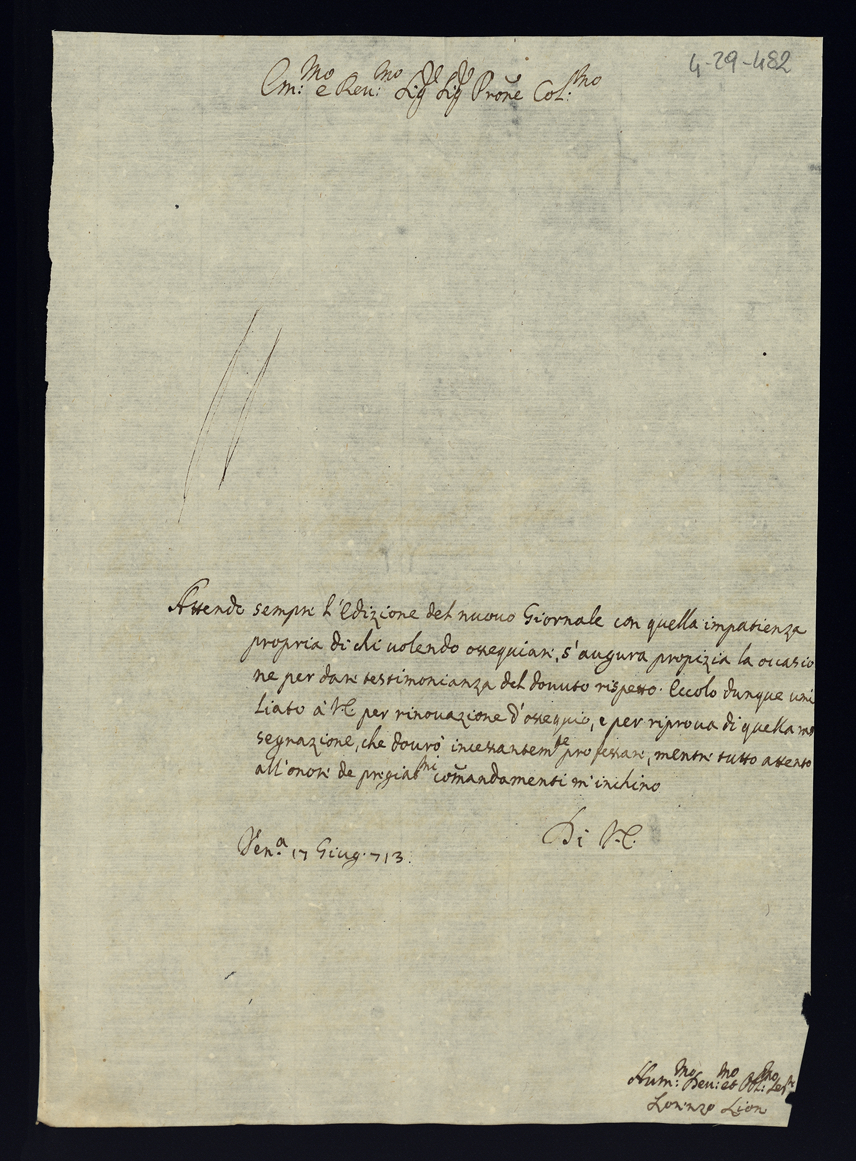 4-29-482
Em:mo e Reu:mo Sig.r Sig.r Prone Col:mo
Attendo sempre l'Edizione del nuouo Giornale con quella impatienza
propria di chi uolendo ossequiare, s'augura propizia la occasio
ne per dare testimonianza del douuto rispetto. Eccolo dunque umi
liato à V.E. per rinouazione d'ossequio, e per riproua di quella ras
segnazione, che dourò incessantem.te professare, mentre tutto attento
all'onore de pregiat.mi comandamenti m'inchino
Di V.E.
Ven.a 17 Giug. 713.
Hum:mo Deu:mo et Obl:mo Ser.re
Lorenzo Lion